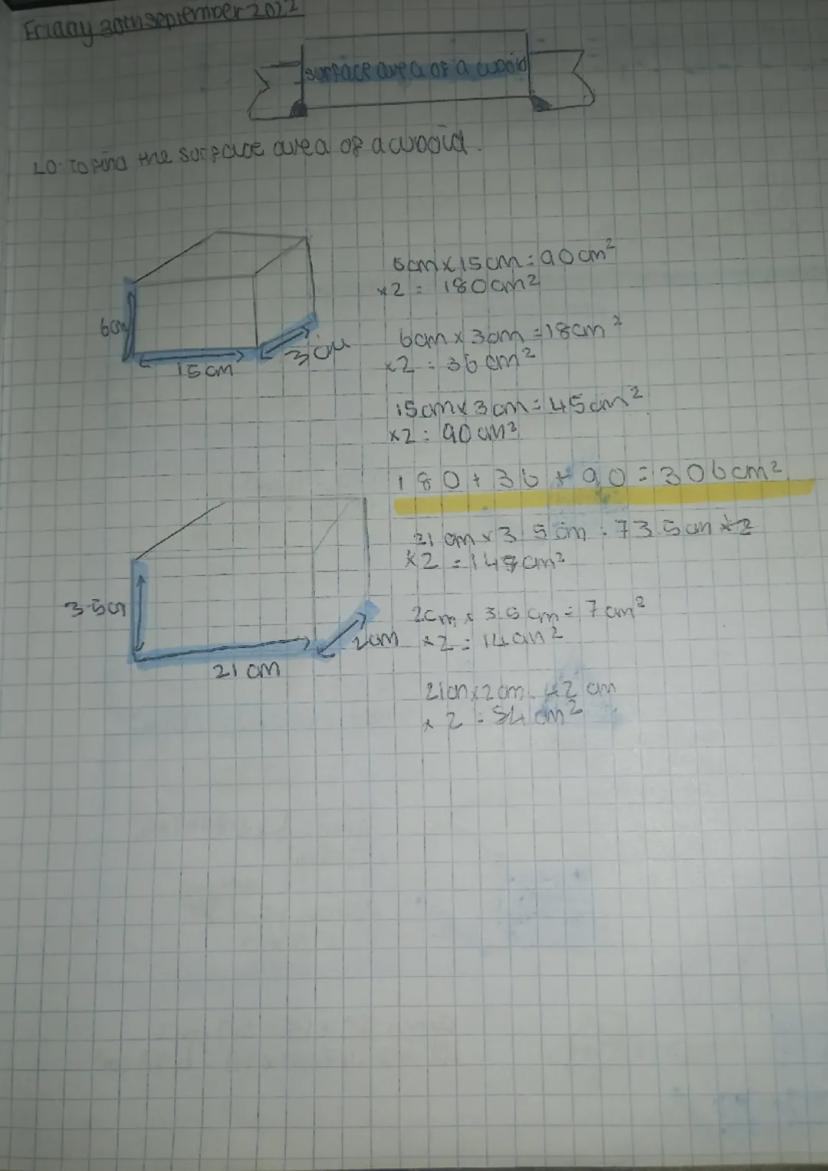 Friday 30th september 2022
surface area of a cuboid
LO: To find the surface area of a cuboid.
6cm
15cm
3cm
6cm x 15cm = 90cm²
x2 = 180cm²
6cm x 3cm = 18cm²
x2 = 36cm²
15cm x 3cm = 45cm²
x2 = 90cm²
180 + 36 + 90 = 306cm²
3.5cm
21cm
2cm
21cm x 3.5cm = 73.5cm
x2 = cm²
2cm x 3.5cm = 7cm²
x2 = 14cm²
21cm x 2cm = 42cm
x2 = 84cm²